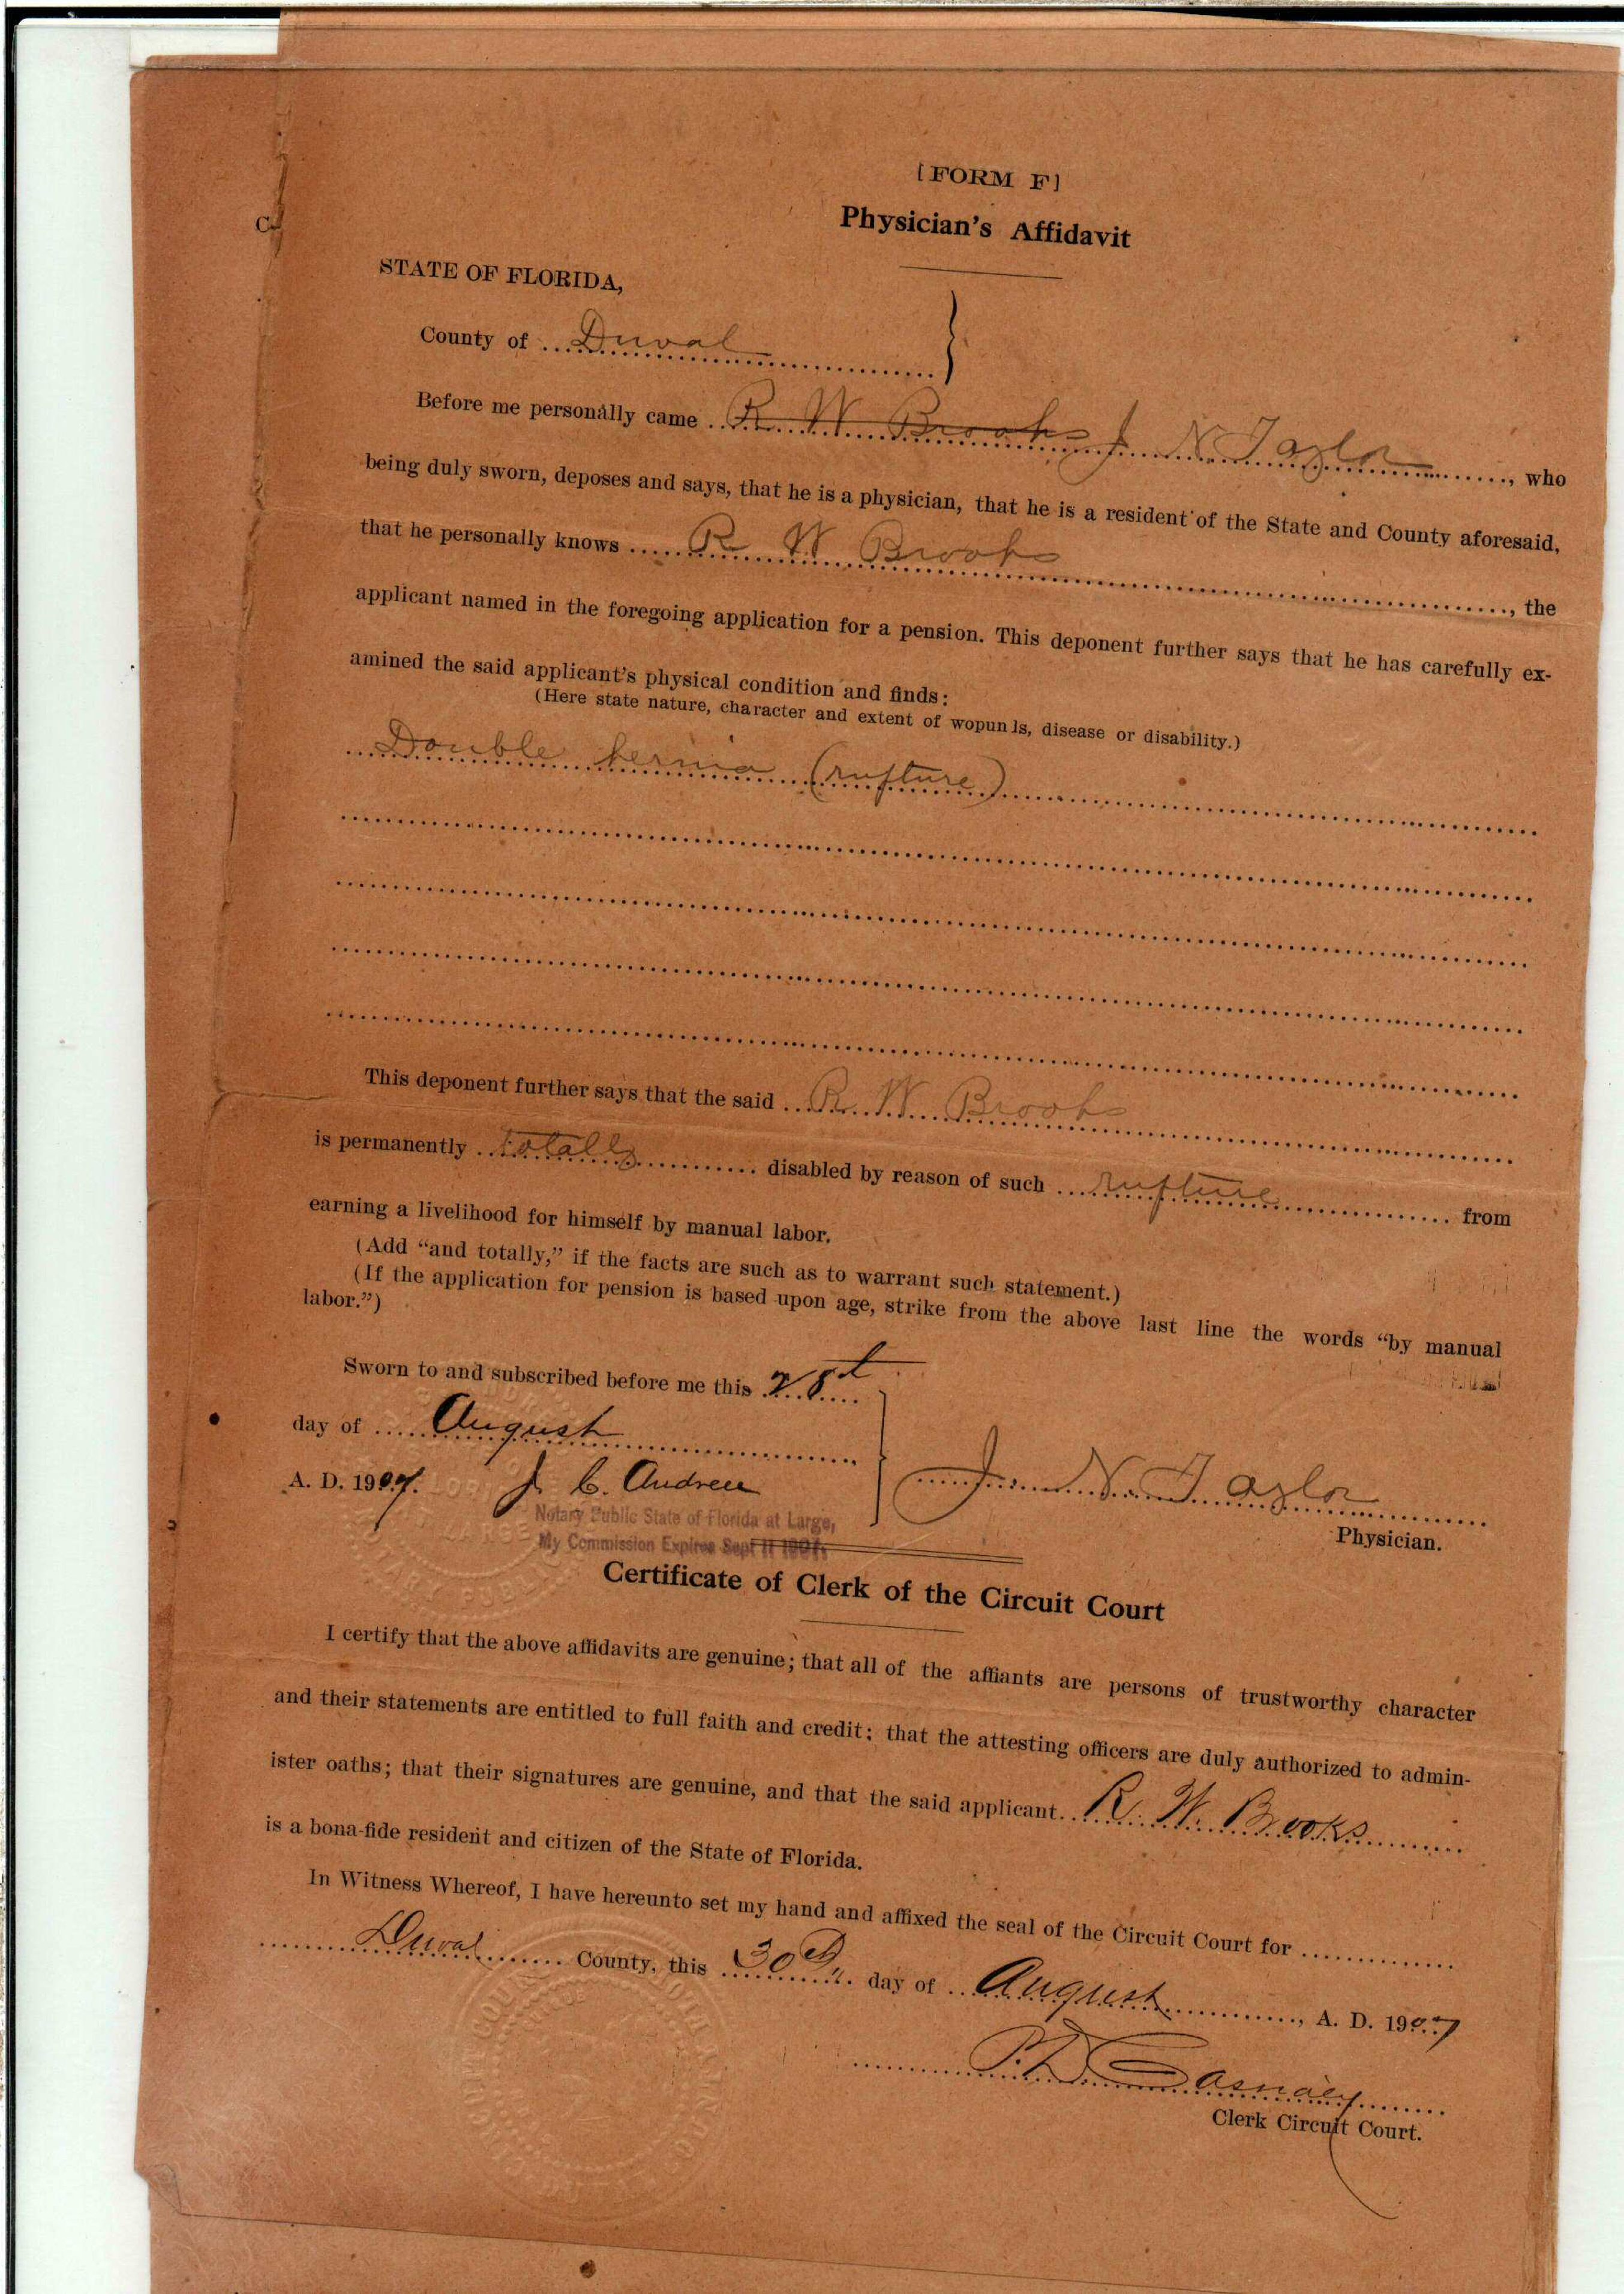 [FORM F]
Physician's Affidavit
STATE OF FLORIDA,
County of Duval
Before me personally came R W Brooks J. N. Taylor, who
being duly sworn, deposes and says, that he is a physician, that he is a resident of the State and County aforesaid,
that he personally knows R W Brooks, the
applicant named in the foregoing application for a pension. This deponent further says that he has carefully ex-
amined the said applicant's physical condition and finds:
(Here state nature, character and extent of wopunds, disease or disability.)
Double hernia (rupture)
This deponent further says that the said R W Brooks
is permanently totally disabled by reason of such rupture from
earning a livelihood for himself by manual labor.
(Add "and totally," if the facts are such as to warrant such statement.)
(If the application for pension is based upon age, strike from the above last line the words "by manual
labor.")
Sworn to and subscribed before me this 28t
day of August
A. D. 1907. J. C. Andreu
J. N. Taylor
Notary Public State of Florida at Large,
My Commission Expires Sept 11 1907.
Physician.
Certificate of Clerk of the Circuit Court
I certify that the above affidavits are genuine; that all of the affiants are persons of trustworthy character
and their statements are entitled to full faith and credit; that the attesting officers are duly authorized to admin-
ister oaths; that their signatures are genuine, and that the said applicant R. W. Brooks
is a bona-fide resident and citizen of the State of Florida.
In Witness Whereof, I have hereunto set my hand and affixed the seal of the Circuit Court for
Duval County, this 30th day of August, A. D. 1907
Clerk Circuit Court.